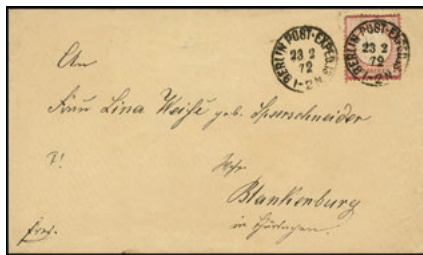 BERLIN POST-EXPED.
23 2
72
1-2 N.
BERLIN POST-EXPED.
23 2
72
1-2 N.
An
Frau Lina Weihe geb. Spurschneider
Blankenburg
in Thüringen.
frei.